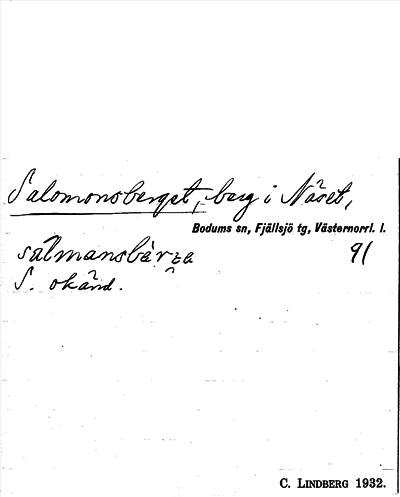 Salomonsberget, berg i Näset,
Bodums sn, Fjällsjö tg, Västernorrl. l.
91
S. okänd.
C. LINDBERG 1932.